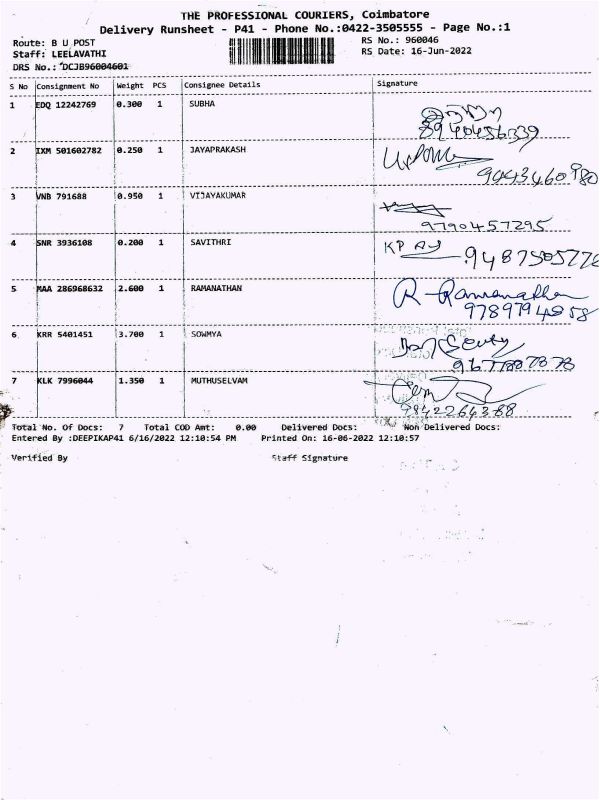 THE PROFESSIONAL COURIERS, Coimbatore
Delivery Runsheet - P41 - Phone No.:0422-3505555 - Page No.:1
Route: B U POST RS No.: 960046
Staff: LEELAVATHI RS Date: 16-Jun-2022
DRS No.: DCJB96004601
S No Consignment No Weight PCS Consignee Details Signature
1 EDQ 12242769 0.300 1 SUBHA
8940456339
2 IXM 501602782 0.250 1 JAYAPRAKASH
9043460980
3 VNB 791688 0.950 1 VIJAYAKUMAR
9790457295
4 SNR 3936108 0.200 1 SAVITHRI
5 MAA 286968632 2.600 1 RAMANATHAN R-Ramanathan
9789794058
6 KRR 5401451 3.700 1 SOWMYA
7 KLK 7996044 1.350 1 MUTHUSELVAM
9842264388
Total No. Of Docs: 7 Total COD Amt: 0.00 Delivered Docs: Non Delivered Docs:
Entered By :DEEPIKAP41 6/16/2022 12:10:54 PM Printed On: 16-06-2022 12:10:57
Verified By Staff Signature